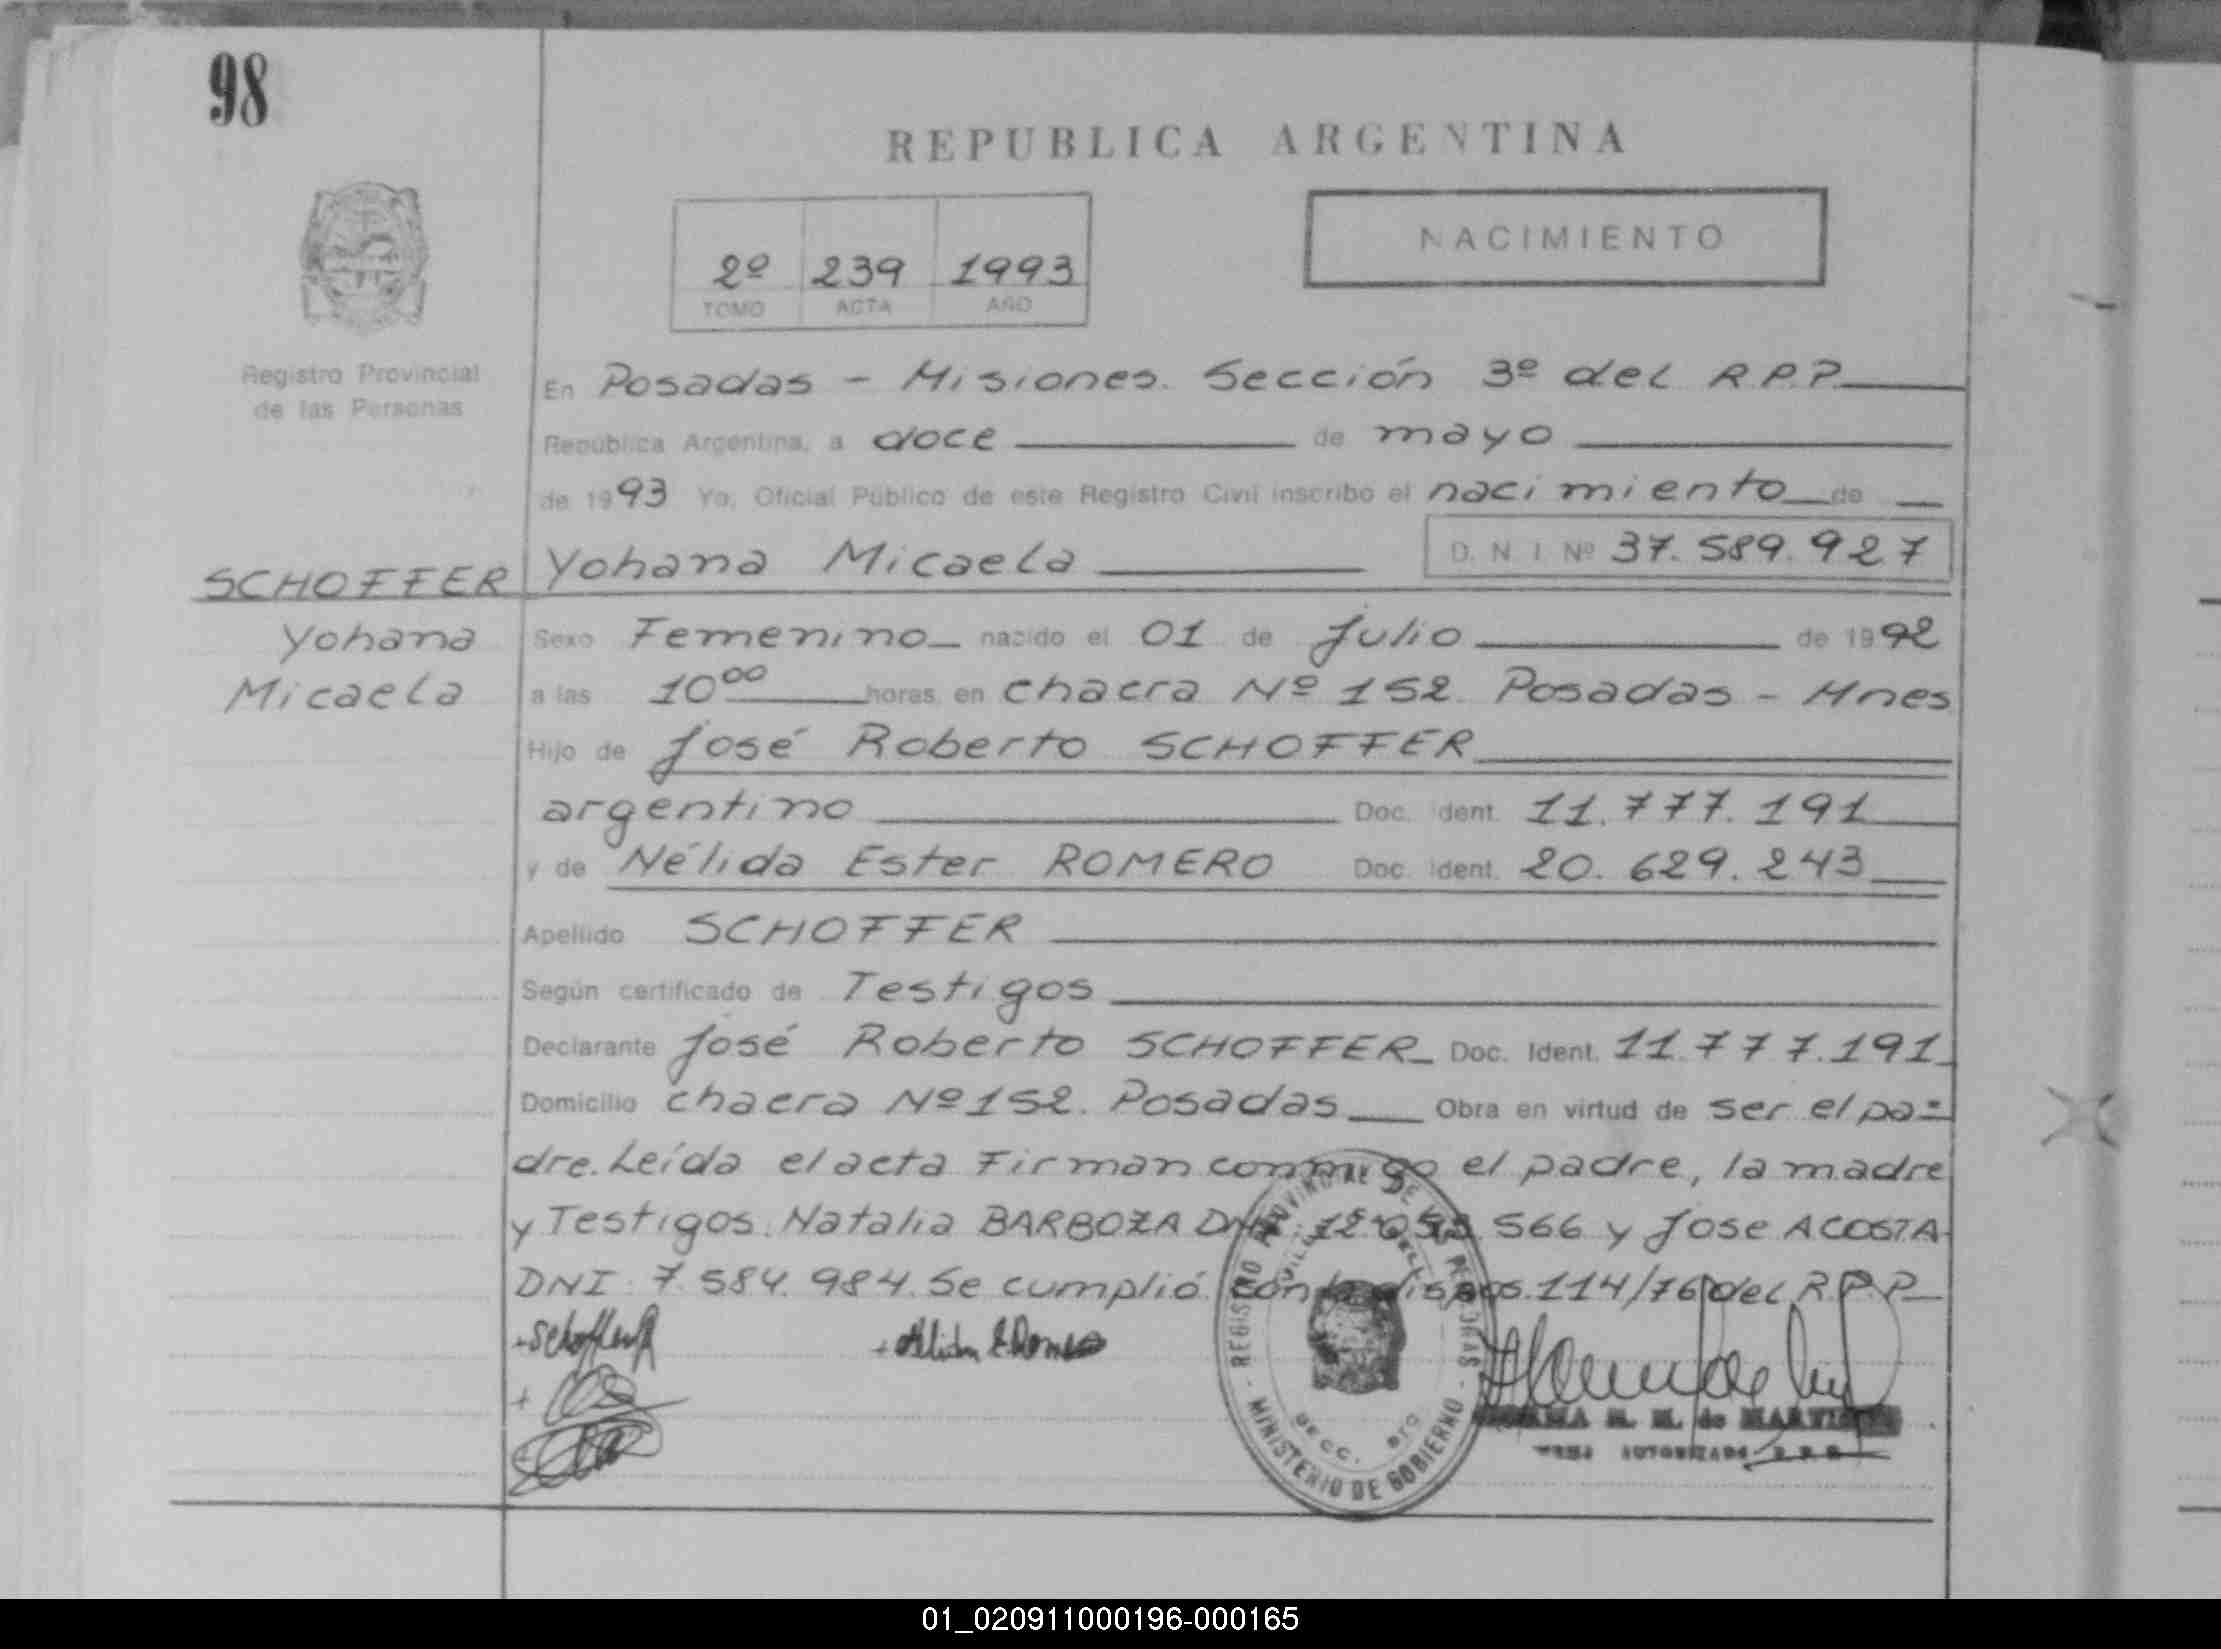 98
REPUBLICA ARGENTINA
NACIMIENTO
2º 239 1993
TOMO ACTA AÑO
Registro Provincial
de las Personas
En Posadas - Misiones. Sección 3º del R.P.P.
República Argentina, a doce de mayo
de 1993 Yo, Oficial Público de este Registro Civil inscribo el nacimiento de
Yohana Micaela D. N. I. Nº 37.589.927
SCHOFFER
Yohana
Micaela
Sexo Femenino nacido el 01 de Julio de 1992
a las 10⁰⁰ horas en chacra Nº 152 Posadas - Mnes
Hijo de José Roberto SCHOFFER
argentino Doc. Ident. 11.777.191
y de Nélida Ester ROMERO Doc. Ident. 20.629.243
Apellido SCHOFFER
Según certificado de Testigos
Declarante José Roberto SCHOFFER Doc. Ident. 11.777.191
Domicilio chacra Nº 152. Posadas Obra en virtud de ser el pa-
dre. Leída el acta Firman conmigo el padre, la madre
y Testigos. Natalia BARBOZA 566 y Jose ACOSTA
DNI: 7.584.984. Se cumplió con la 114/76 del R.P.P.
REGISTRO PROVINCIAL DE LAS PERSONAS
MINISTERIO DE GOBIERNO
M. M. de
AUTORIZADO R.P.P.
01_020911000196-000165